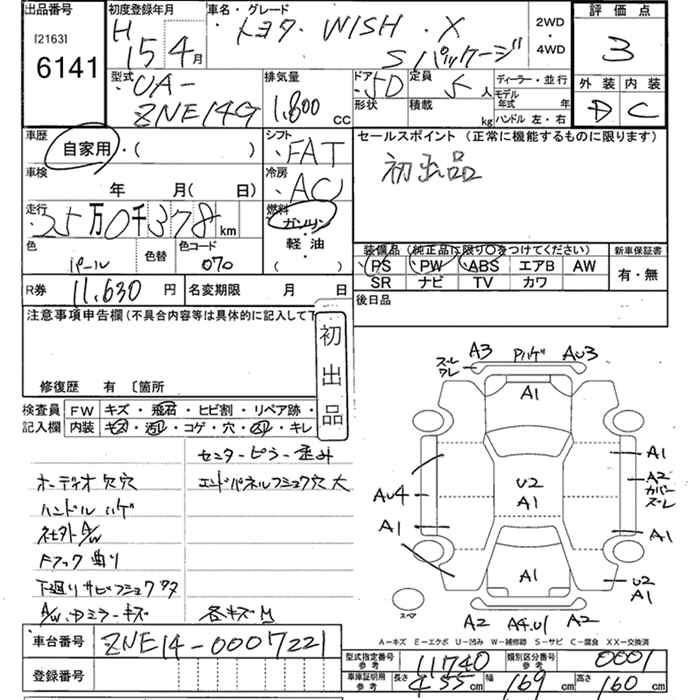 出品番号
[2163]
6141
初度登録年月
H 15年 4月
車名・グレード
トヨタ WISH X
Sパッケージ
2WD
・
4WD
評価点
3
外装 内装
D C
型式
UA-
ZNE14G
排気量
1,800 cc
ドア 5D
形状
定員 5 人
積載 kg
ディーラー・並行
モデル
年式 年
ハンドル 左・右
車歴
自家用・( )
車検
年 月( 日)
シフト
FAT
冷房
AC
セールスポイント (正常に機能するものに限ります)
初出品
走行
35万0千378km
燃料
ガソリン
軽油
( )
色
パール
色替
色コード
070
装備品(純正品に限り○をつけてください)
PS PW ABS エアB AW
SR ナビ TV カワ
新車保証書
有・無
R券 11,630 円
名変期限 月 日
後日品
注意事項申告欄(不具合内容等は具体的に記入して下
初出品
修復歴 有 〔箇所
検査員
記入欄
FW キズ・飛石・ヒビ割・リペア跡・
内装 キズ・汚レ・コゲ・穴・スレ・キレ
センターピラー歪み
オーディオ欠穴
エンドパネルフショク穴大
ハンドルハゲ
ネ社外A/W
Fフック曲り
下廻りサビフショク
A/W、Dミラーキズ
各キズ
ズレ
ワレ
A3 Pハゲ AU3
A1
A1
A2
カバー
ズレ
AU4
U2
A1
A1
A1
A1
U2
A1
スペア
A2 A4.U1 A2
A-キズ E-エクボ U-凹み W-補修跡 S-サビ C-腐食 XX-交換済
車台番号
ZNE14-0007221
登録番号
型式指定番号
参考
11740
類別区分番号
参考
0001
車庫証明用
参考
長さ 455cm 幅 169cm 高さ 160cm